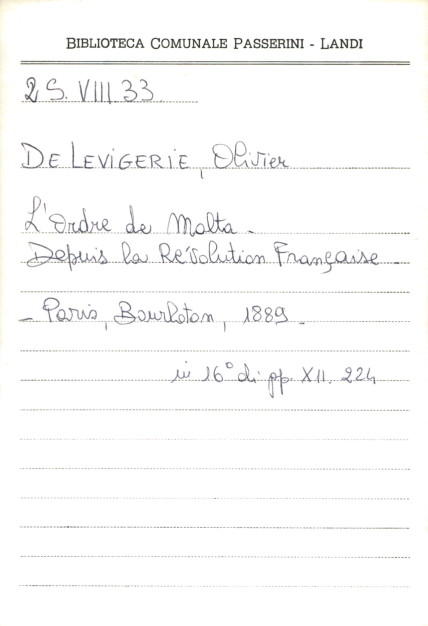 BIBLIOTECA COMUNALE PASSERINI - LANDI
2 S. VIII 33
DE LEVIGERIE, Olivier
L'Ordre de Malta -
Depuis la Révolution Française -
- Paris, Bourloton, 1889 -
in 16° di pp. XII. 224